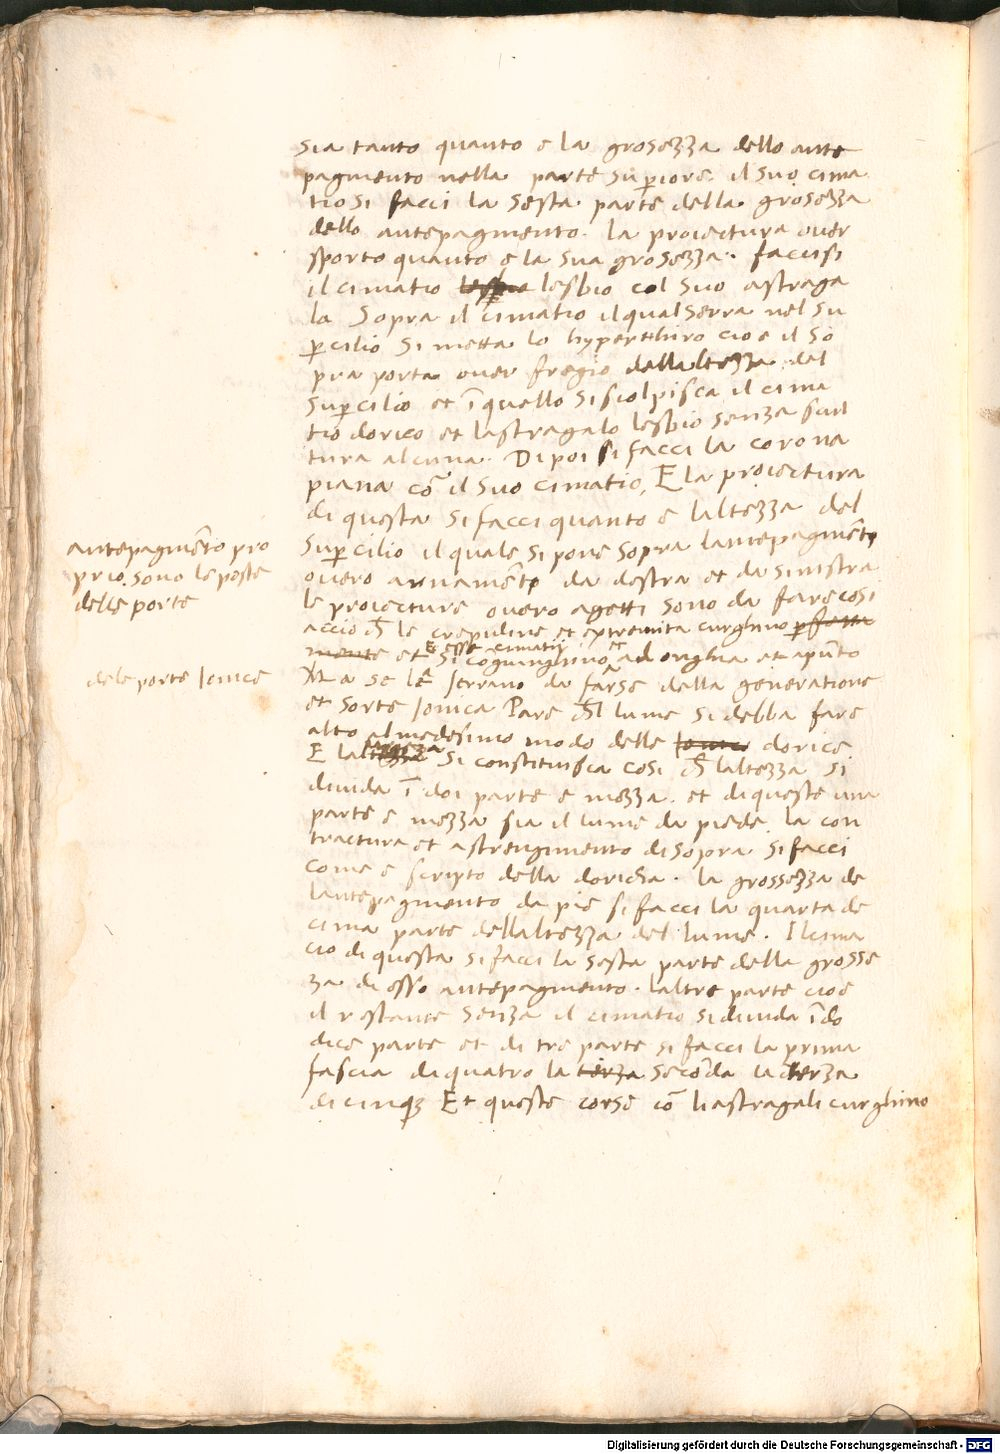 sia tanto quanto e la grosezza dello ante
pagmento nella parte superiore il suo cima
tio si facci la sesta parte della grosezza
dello antepagmento. la proiectura over
sporto quanto e la sua grosezza. faccisi
il cimatio lesbio lesbio col suo astraga
lo sopra il cimatio il qual serra nel su
percilio si metta lo hyperthiro cioe il so
pra porta over fregio dellaltezza del
supercilio et ī quello si scolpisca il cima
tio dorico et lastragalo lesbio senza scul
tura alcuna. Dipoi si facci la corona
piana cō il suo cimatio, E la proiectura
di questa si facci quanto e laltezza del
supercilio il quale si pone sopra lantepagmēto
overo arnamēto da destra et da sinistra
le proiecture overo agetti sono da fare cosi
accio che le crepidine et extremita curghino
et si cōgiunghino ad onghia et apūto
antepagmēto pro
prio. sono le poste
delle porte
dele porte Ionice
Ma se le serrano da farse della generatione
et sorte Ionica Pare che l lume si debba fare
alto al medesimo modo delle Ionice dorice
E la si constituisca cosi che laltezza si
divida ī doi parte e mezza. et di queste una
parte e mezza sia il lume da piede. la con
tractura et astrengimento di sopra si facci
come e scripto della doricha. la grossezza de
lantepagmento da pie si facci la quarta de
cima parte dellaltezza del lume. Il cima
cio di questa si facci la sesta parte della grosse
za di esso antepagmento. laltre parte cioe
il restante senza il cimatio si divida ī do
dice parte et di tre parte si facci la prima
fascia di quatro la terza secōda la terza
di cinque Et queste corse cō li astragali curghino
Digitalisierung gefördert durch die Deutsche Forschungsgemeinschaft - DFG